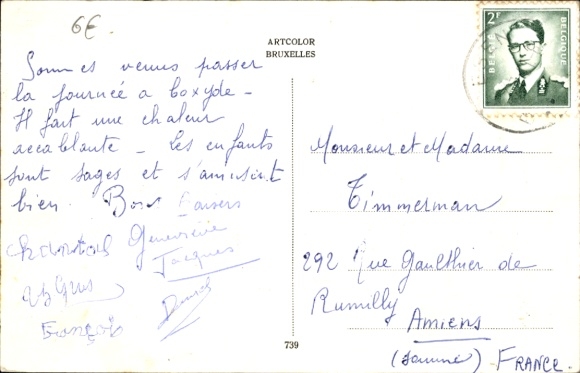 6€
ARTCOLOR
BRUXELLES
2F
BELGIË
BELGIQUE
Sommes venus passer
la journée a Coxyde -
Il fait une chaleur
accablante - Les enfants
sont sages et s'amusent
bien. Bons Baisers
Chantal Geneviève
Jacques
François
Monsieur et Madame
Timmerman
292 Rue Gaulthier de
Rumilly
Amiens
(Somme) FRANCE.
739